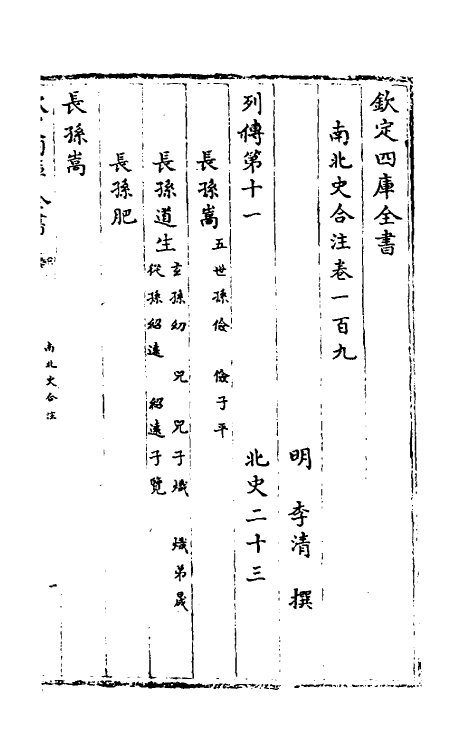 欽定四庫全書
南北史合注卷一百九
明 李清 撰
列傳第十一 北史二十三
長孫嵩 五世孫儉 儉子平
長孫道生 玄孫幼 兕 兕子熾 熾弟晟 從孫紹遠 紹遠子覽
長孫肥
長孫嵩
南北史合注
一